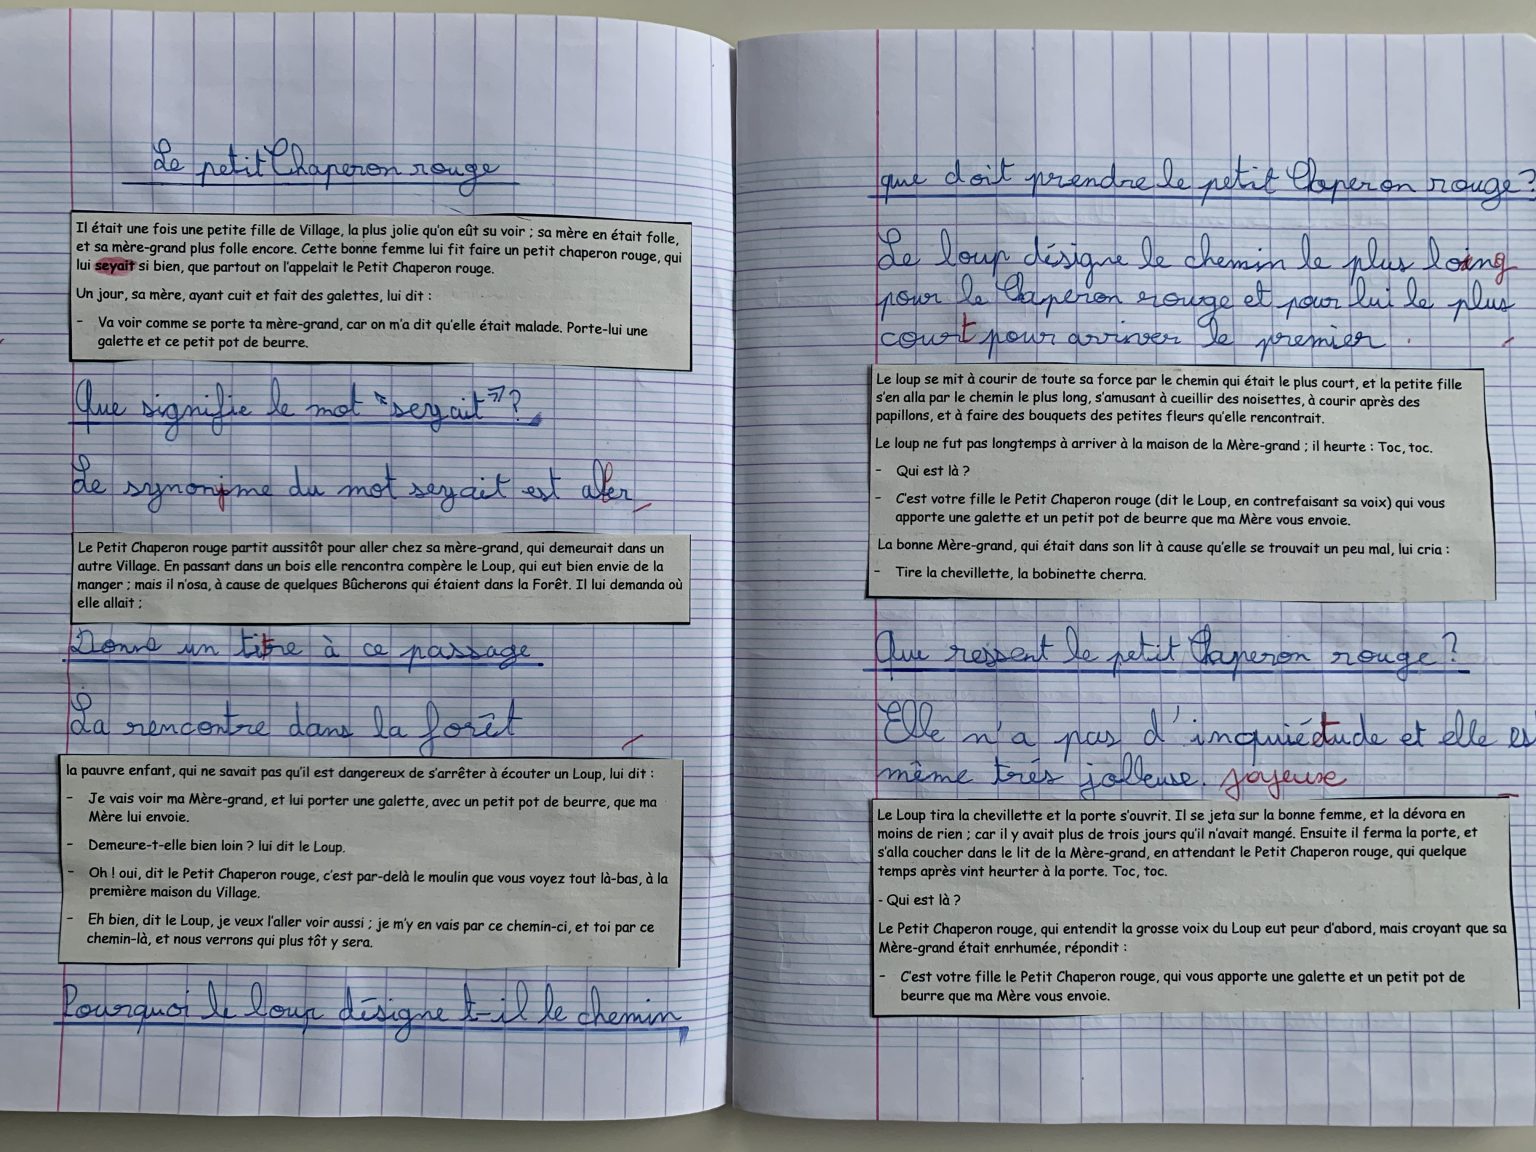 Le petit Chaperon rouge
Il était une fois une petite fille de Village, la plus jolie qu'on eût su voir ; sa mère en était folle,
et sa mère-grand plus folle encore. Cette bonne femme lui fit faire un petit chaperon rouge, qui
lui seyait si bien, que partout on l'appelait le Petit Chaperon rouge.
Un jour, sa mère, ayant cuit et fait des galettes, lui dit :
- Va voir comme se porte ta mère-grand, car on m'a dit qu'elle était malade. Porte-lui une
galette et ce petit pot de beurre.
Que signifie le mot "seyait"?
Le synonyme du mot seyait est aller
Le Petit Chaperon rouge partit aussitôt pour aller chez sa mère-grand, qui demeurait dans un
autre Village. En passant dans un bois elle rencontra compère le Loup, qui eut bien envie de la
manger ; mais il n'osa, à cause de quelques Bûcherons qui étaient dans la Forêt. Il lui demanda où
elle allait ;
Donne un titre à ce passage
La rencontre dans la forêt
la pauvre enfant, qui ne savait pas qu'il est dangereux de s'arrêter à écouter un Loup, lui dit :
- Je vais voir ma Mère-grand, et lui porter une galette, avec un petit pot de beurre, que ma
Mère lui envoie.
- Demeure-t-elle bien loin ? lui dit le Loup.
- Oh ! oui, dit le Petit Chaperon rouge, c'est par-delà le moulin que vous voyez tout là-bas, à la
première maison du Village.
- Eh bien, dit le Loup, je veux l'aller voir aussi ; je m'y en vais par ce chemin-ci, et toi par ce
chemin-là, et nous verrons qui plus tôt y sera.
Pourquoi le loup désigne t-il le chemin
que doit prendre le petit Chaperon rouge?
Le loup désigne le chemin le plus loing
pour le Chaperon rouge et pour lui le plus
court pour arriver le premier.
Le loup se mit à courir de toute sa force par le chemin qui était le plus court, et la petite fille
s'en alla par le chemin le plus long, s'amusant à cueillir des noisettes, à courir après des
papillons, et à faire des bouquets des petites fleurs qu'elle rencontrait.
Le loup ne fut pas longtemps à arriver à la maison de la Mère-grand ; il heurte : Toc, toc.
- Qui est là ?
- C'est votre fille le Petit Chaperon rouge (dit le Loup, en contrefaisant sa voix) qui vous
apporte une galette et un petit pot de beurre que ma Mère vous envoie.
La bonne Mère-grand, qui était dans son lit à cause qu'elle se trouvait un peu mal, lui cria :
- Tire la chevillette, la bobinette cherra.
Que ressent le petit Chaperon rouge?
Elle n'a pas d'inquiétude et elle es
même trés jolleuse. joyeuse
Le Loup tira la chevillette et la porte s'ouvrit. Il se jeta sur la bonne femme, et la dévora en
moins de rien ; car il y avait plus de trois jours qu'il n'avait mangé. Ensuite il ferma la porte, et
s'alla coucher dans le lit de la Mère-grand, en attendant le Petit Chaperon rouge, qui quelque
temps après vint heurter à la porte. Toc, toc.
- Qui est là ?
Le Petit Chaperon rouge, qui entendit la grosse voix du Loup eut peur d'abord, mais croyant que sa
Mère-grand était enrhumée, répondit :
- C'est votre fille le Petit Chaperon rouge, qui vous apporte une galette et un petit pot de
beurre que ma Mère vous envoie.